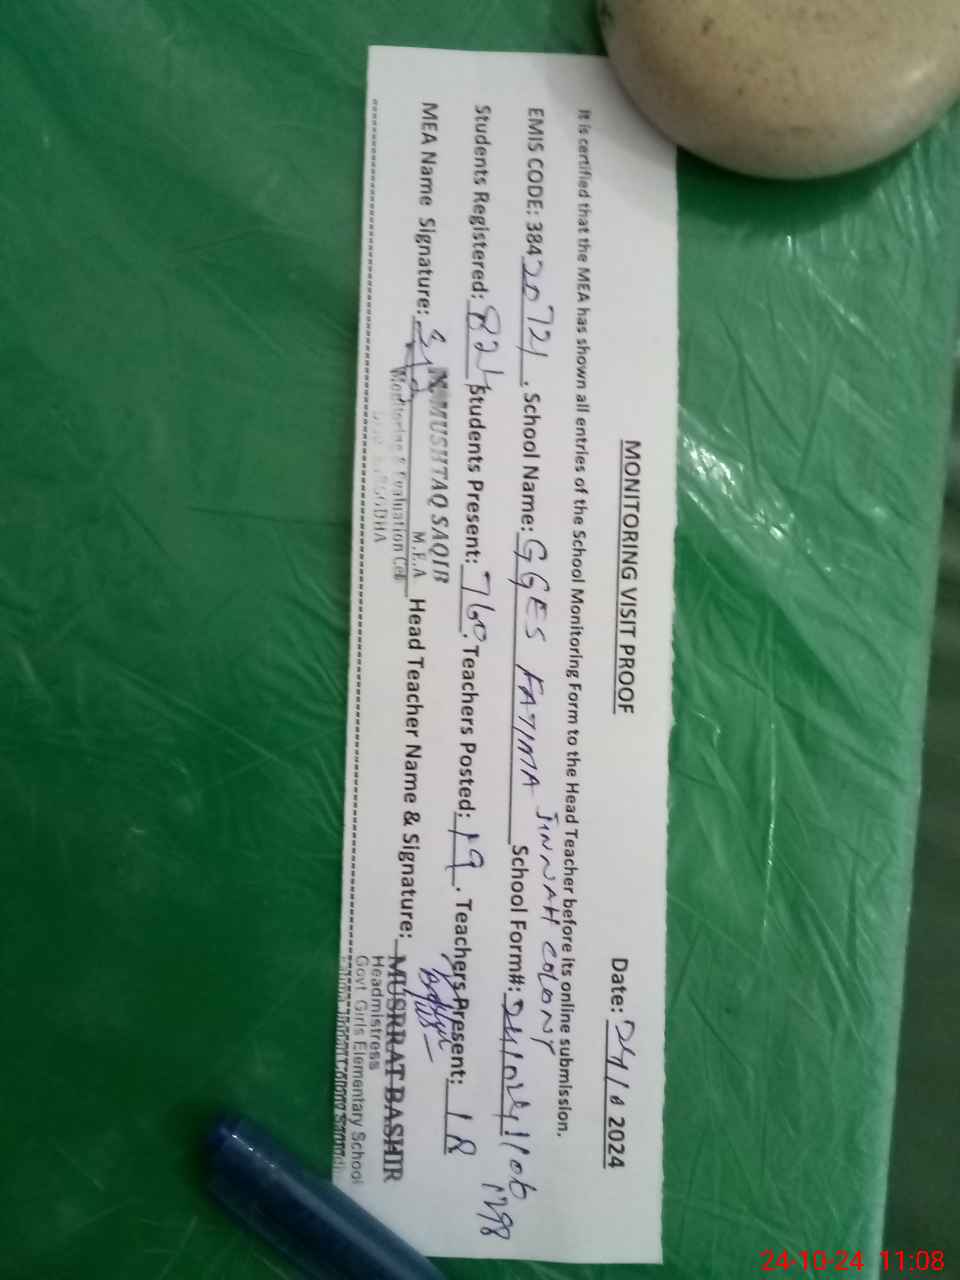 MONITORING VISIT PROOF
Date: 24/10 2024
It is certified that the MEA has shown all entries of the School Monitoring Form to the Head Teacher before its online submission.
EMIS CODE: 38420721, School Name: GGES FATIMA JINNAH COLONY School Form#: 241024 1106
1298
Students Registered: 824, Students Present: 760, Teachers Posted: 19, Teachers Present: 18
MEA Name Signature: M. MUSHTAQ SAQIB Head Teacher Name & Signature: MUSRRAT BASHIR
M.E.A
Monitoring & Evaluation Cell
Headmistress
Govt. Girls Elementary School
24-10-24 11:08